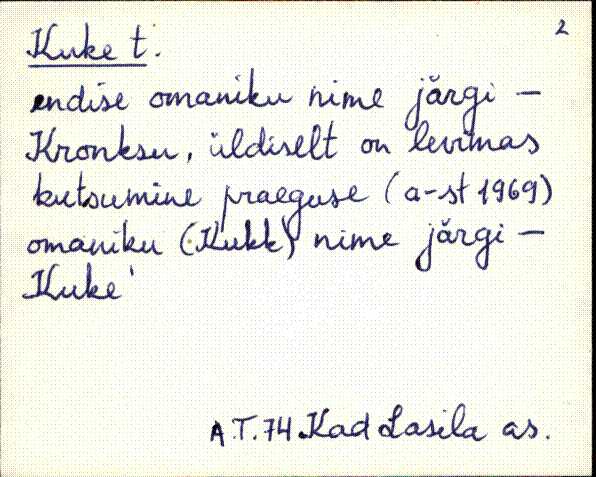 2
Kuke t.
endise omaniku nime järgi –
Kronksu, üldiselt on levimas
kutsumine praeguse (a-st 1969)
omaniku (Kukk) nime järgi –
Kuke'
A.T. 74 Kad Lasila as.